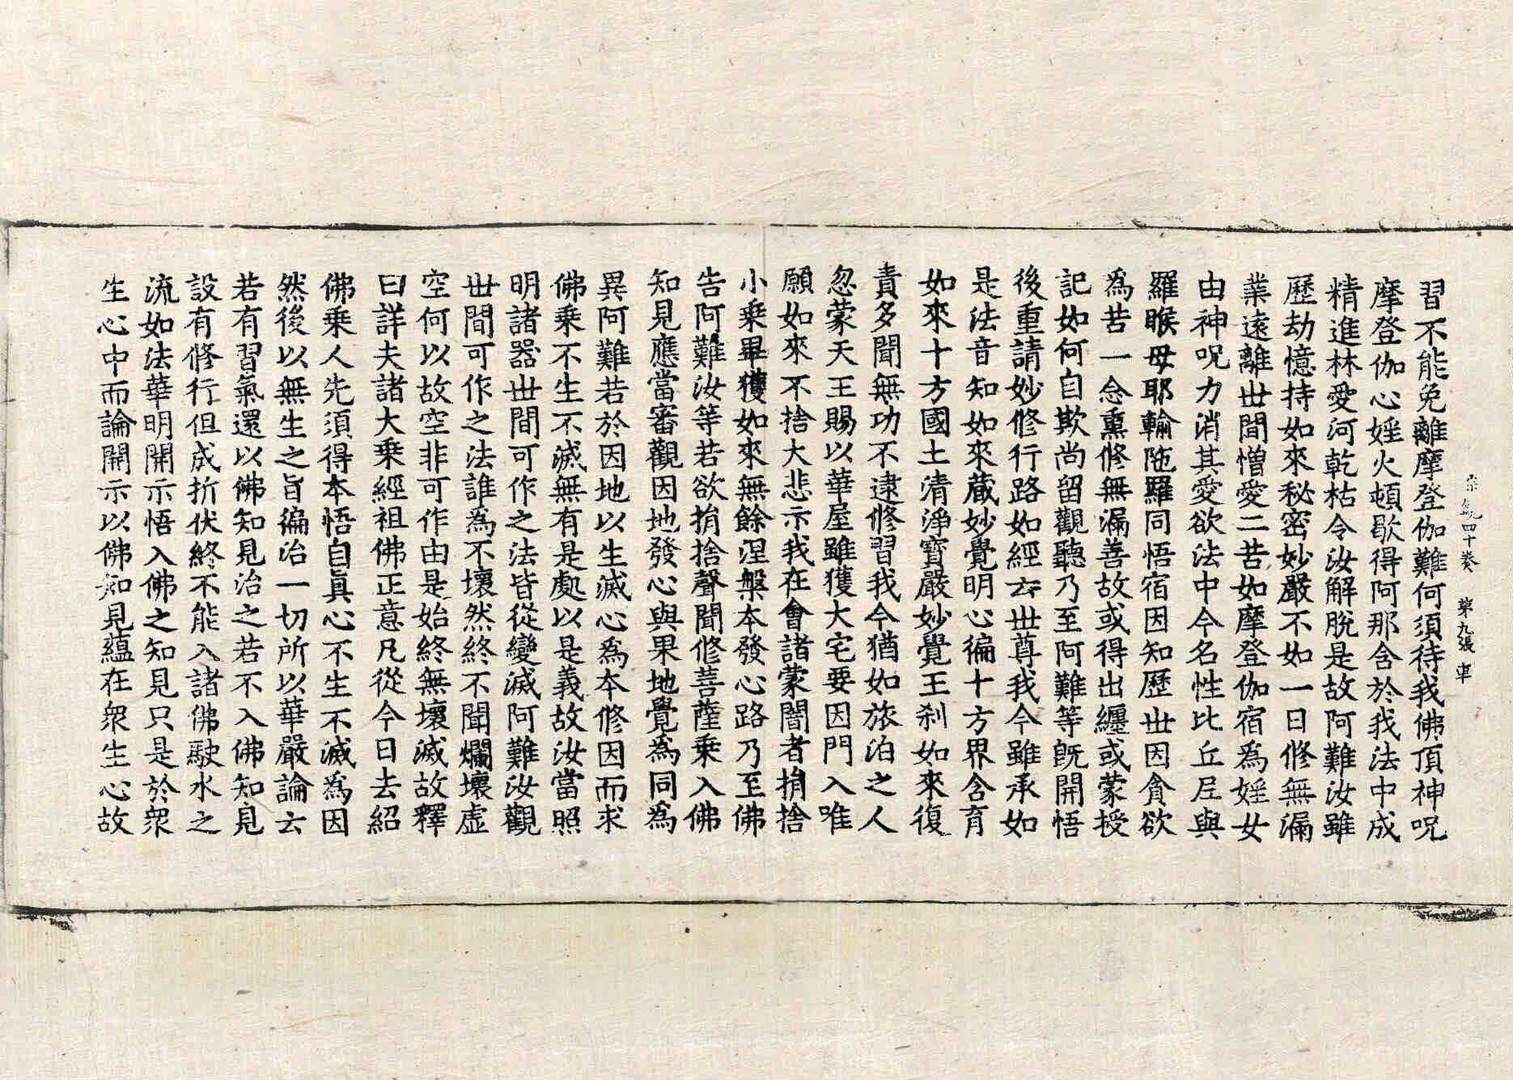 宗鏡四十卷 第九張 軍
習不能免離摩登伽難何須待我佛頂神呪
摩登伽心婬火頓歇得阿那含於我法中成
精進林愛河乾枯令汝解脫是故阿難汝雖
歷劫憶持如來秘密妙嚴不如一日修無漏
業遠離世間憎愛二苦如摩登伽宿為婬女
由神呪力消其愛欲法中今名性比丘尼與
羅睺母耶輸陁羅同悟宿因知歷世因貪欲
為苦一念熏修無漏善故或得出纏或蒙授
記如何自欺尚留觀聽乃至阿難等旣開悟
後重請妙修行路如經云世尊我今雖承如
是法音知如來藏妙覺明心徧十方界含育
如來十方國土清淨寶嚴妙覺王刹如來復
責多聞無功不逮修習我今猶如旅泊之人
忽蒙天王賜以華屋雖獲大宅要因門入唯
願如來不捨大悲示我在會諸蒙闇者捎捨
小乘畢獲如來無餘涅槃本發心路乃至佛
告阿難汝等若欲捎捨聲聞修菩薩乘入佛
知見應當審觀因地發心與果地覺為同為
異阿難若於因地以生滅心為本修因而求
佛乘不生不滅無有是處以是義故汝當照
明諸器世間可作之法皆從變滅阿難汝觀
世間可作之法誰為不壞然終不聞爛壞虛
空何以故空非可作由是始終無壞滅故釋
曰詳夫諸大乘經祖佛正意凡從今日去紹
佛乘人先須得本悟自眞心不生不滅為因
然後以無生之旨徧治一切所以華嚴論云
若有習氣還以佛知見治之若不入佛知見
設有修行但成折伏終不能入諸佛駛水之
流如法華明開示悟入佛之知見只是於衆
生心中而論開示以佛知見蘊在衆生心故